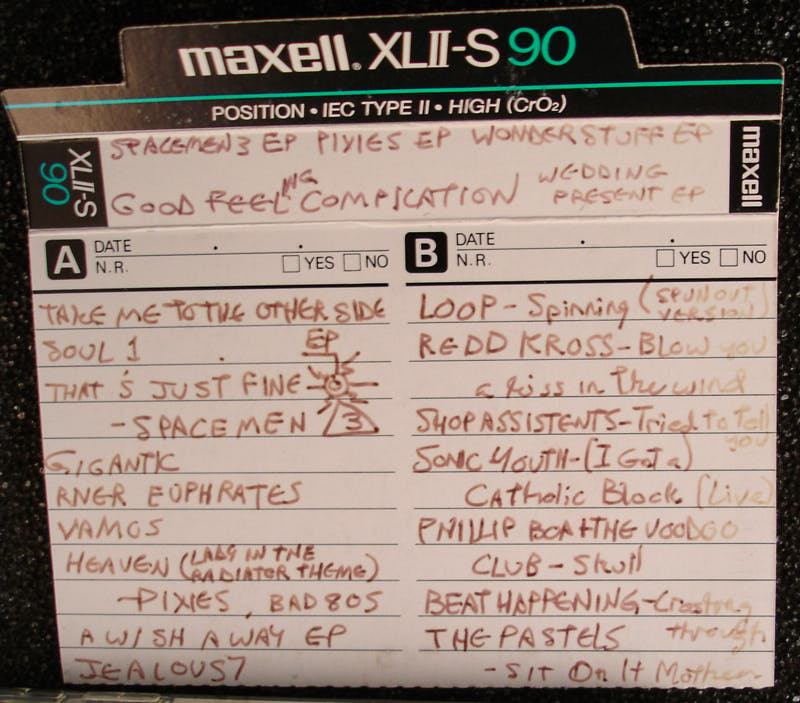 maxell. XLII-S 90
POSITION • IEC TYPE II • HIGH (CrO2)
XLII-S 90
SPACEMEN 3 EP PIXIES EP WONDERSTUFF EP
GOOD FEELING COMPICATION WEDDING PRESENT EP
maxell
A DATE . .
N.R. YES NO
TAKE ME TO THE OTHER SIDE
SOUL 1 EP
THAT'S JUST FINE
- SPACEMEN 3
GIGANTIC
RIVER EUPHRATES
VAMOS
HEAVEN (LADY IN THE RADIATOR THEME)
- PIXIES, BAD 805
A WISH AWAY EP
JEALOUSY
B DATE . .
N.R. YES NO
LOOP - Spinning (SPUN OUT VERSION)
REDD KROSS - BLOW you
a kiss in the wind
SHOP ASSISTENTS - Tried to Tell you
SONIC YOUTH - (I Got a)
Catholic Block (Live)
PHILLIP BOA + THE VOODOO
CLUB - Skull
BEAT HAPPENING - Crashing through
THE PASTELS
- Sit On It Mother